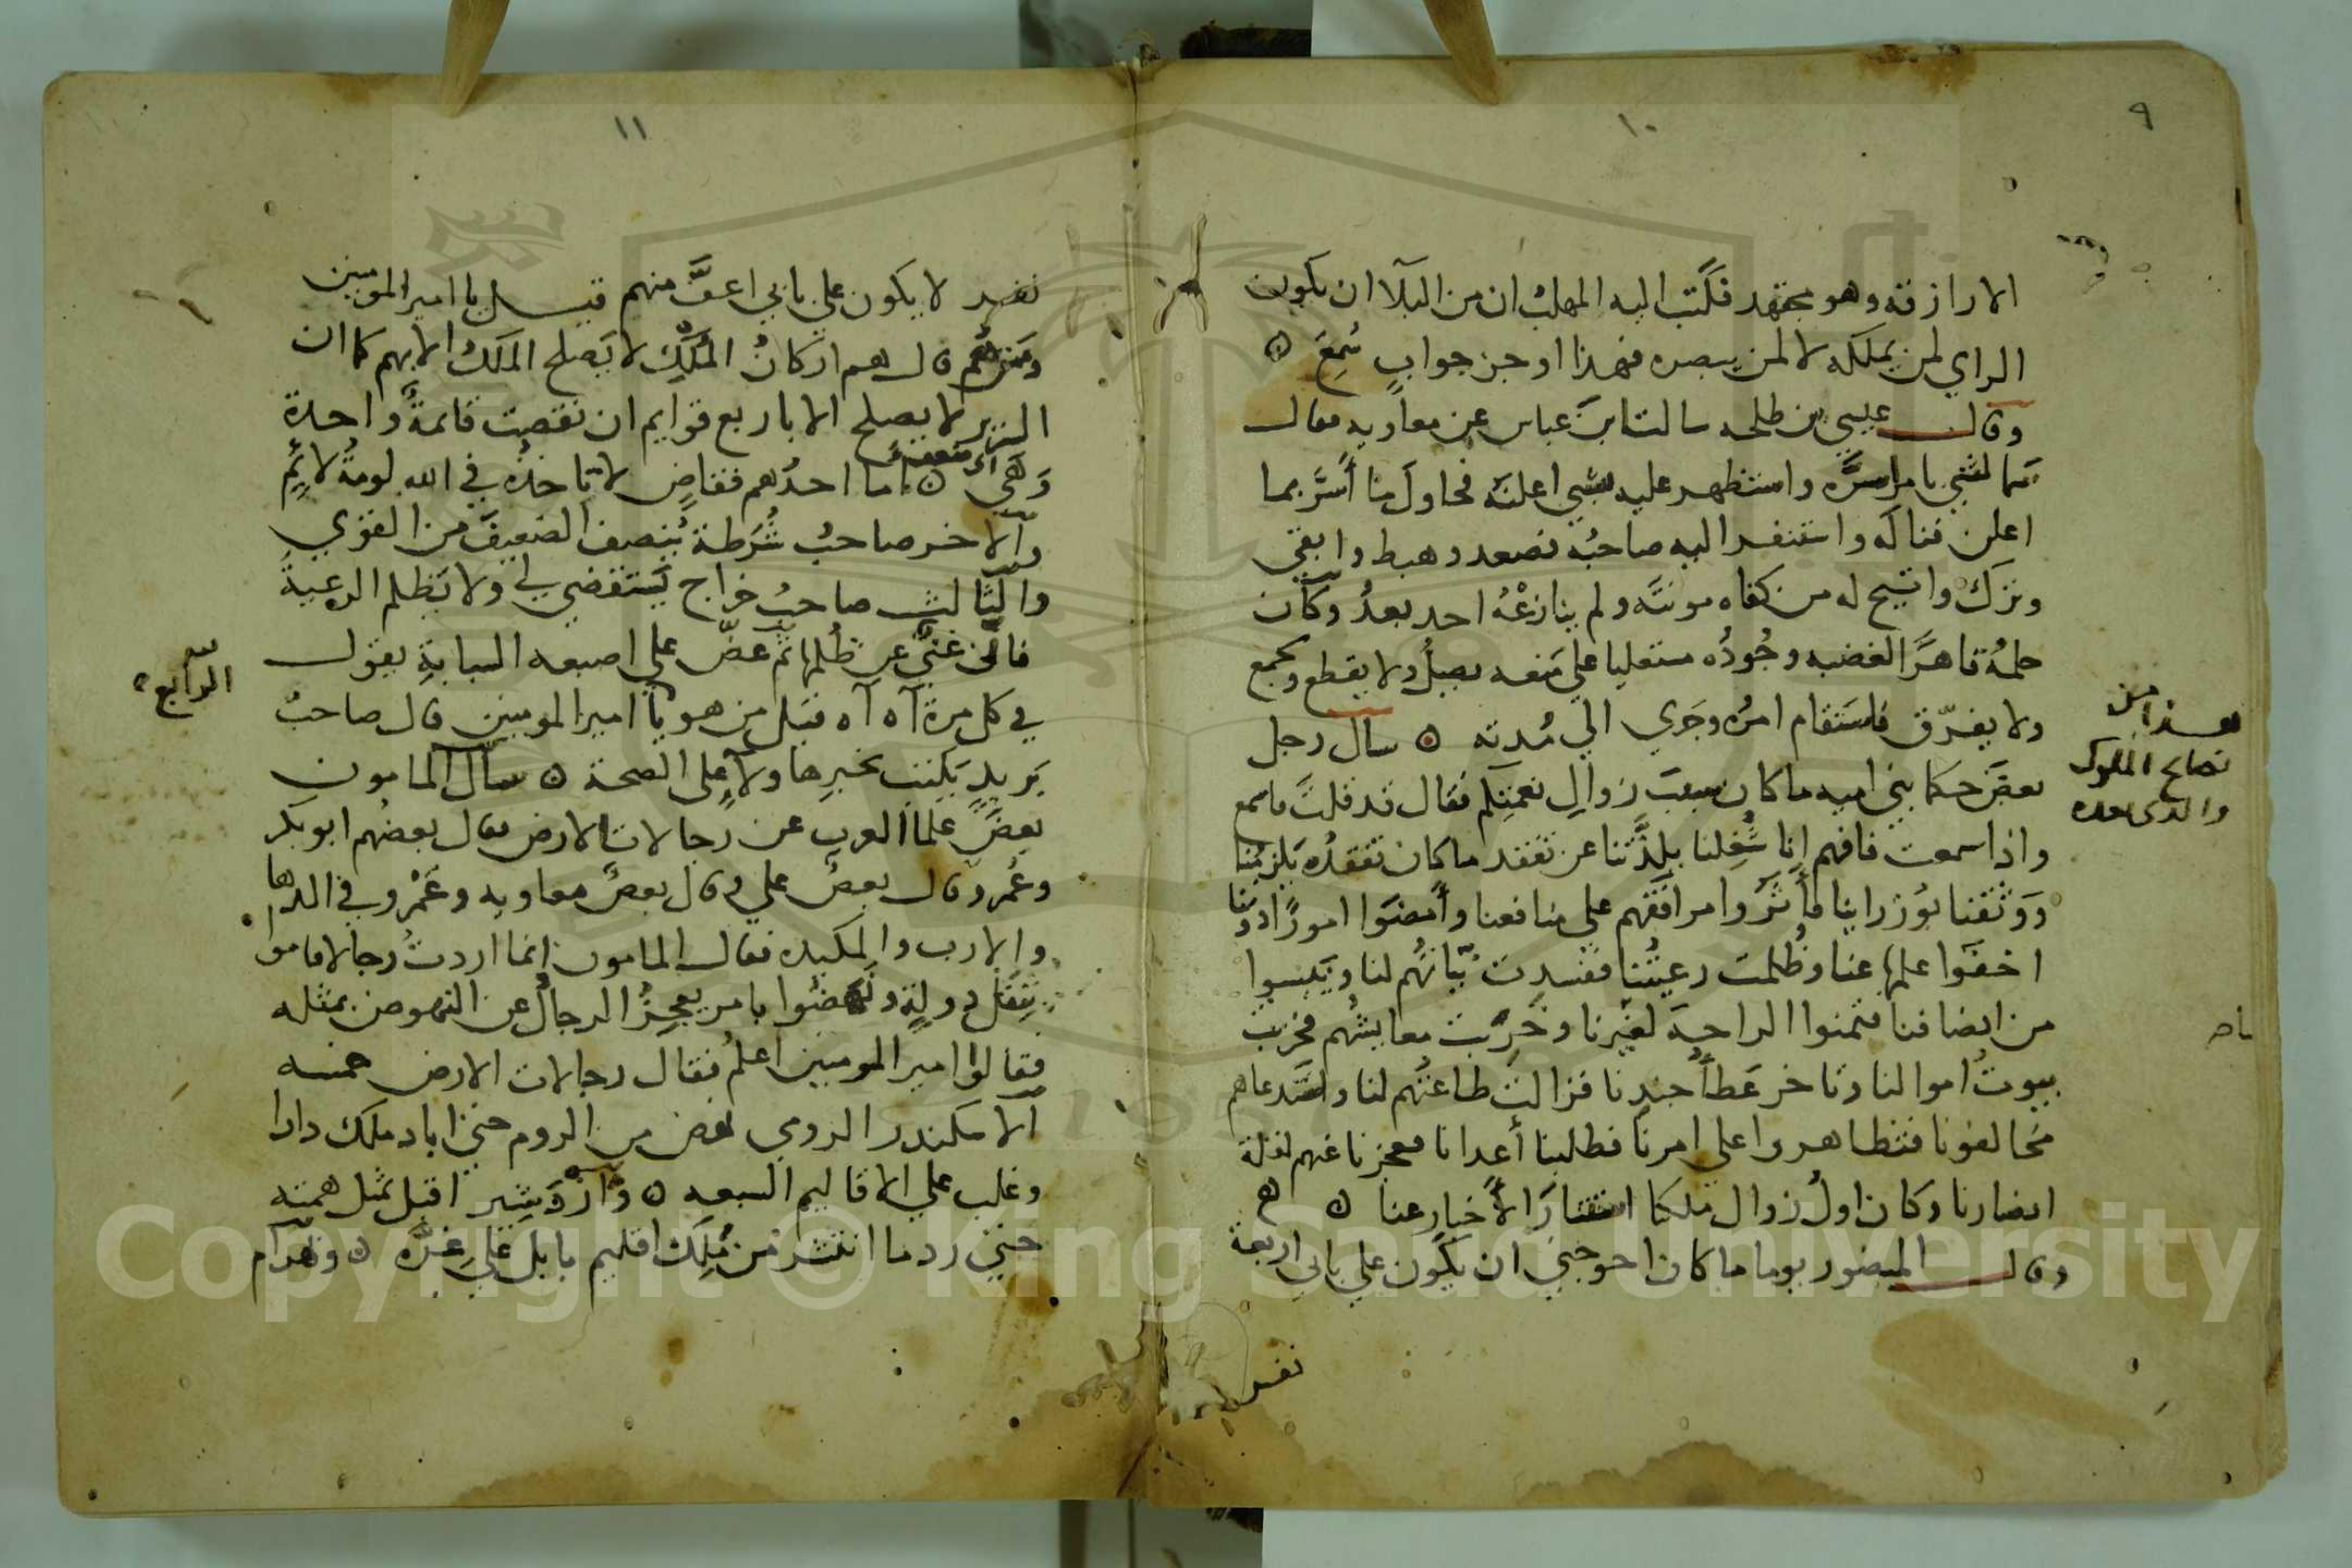 ٩
١٠
الازارقه وهو مجتهد فكتب اليه المهلب ان من البلآ ان يكون
الراي لمن يملكه لا لمن يبصره فهذا اوجز جوابٍ سُمِعَ ٥
وقال عيسي بن طلحه سالت ابن عباس عن معاويه فقال
سما لشي بامر اسرَّه واستظهر عليه بشي اعلنه فحاول ما أسَّر بما
اعلن فناله واستنفر اليه صاحبُه فصعد وهبط وابقي
وترك واتيح له من كفاه مونتَه ولم ينازعْهُ احد بعدُ وكان
حلمُه قاهرًا لغضبه وجُودُه مستعليا علي منعه يصِلُ ولا يقطع ويجمع
ولا يفرّق فاستقام امرُه وجَري الي مُدته ٥ سال رجل
بعضَ حكما بني اميه ما كان سببَ زوالِ نعمتِكم فقال قد قلتَ فاسمع
واذا سمعت فافهم إنا شُغِلنا بلذَّتنا عن تفقد ما كان تفقدُه يَلزمُنا
ووَثقنا بوُزراينا فآثرُوا مرافقَهم علي منافعنا وأمضَوا امورًا دوننا
اخفَوا علمها عنا وظُلمت رعيتُنا ففسدت نيّاتُهم لنا ويَيِسوا
من انصافنا فتمنوا الراحةَ لغيرنا وخَرِبت معايشُهم فخربت
بيوتُ اموالنا وتاخر عَطأُ جندِنا فزالت طاعتُهم لنا واستدعاهم
مخالفونا فتظاهروا علي امرنا فطلبنا أعدانا فعجزنا عنهم لقلة
انصارنا وكان اولُ زوال ملكنا استتارَ الأخبار عنا ٥ ه
وقال المنصور يوما ما كان احوجني ان يكون علي بابي اربعة
نفر
هذا من
نصايح الملوك
والذي بعده
١١
نفر لا يكون علي بابي اعفَّ منهم قيل يا امير المومنين
ومَن هُم قال هم اركانُ المُلكِ لا يَصلح المَلكُ الا بهم كما ان
السرير لا يصلح الا باربع قوايم ان نقصت قائمةٌ واحدة
وَهَي ٥ اما احدُهم فقاضٍ لا تاخذُه في الله لومةُ لائمٍ
والآخر صاحبُ شُرَطة يُنصف الضعيفَ من القوي
والثالث صاحبُ خراج يَستقضي لي ولا يَظلم الرعيةَ
فاني غنيٌّ عن ظُلمها ثم عضّ علي اصبعه السبابةِ يقول
في كل مرة آه آه قيل من هو يا امير المومنين قال صاحبُ
بَريدٍ يَكتب بخبرِ هاولآءِ علي الصحة ٥ سأل المامون
بعضَ علما العرب عن رجالات الارض فقال بعضُهم ابو بكر
وعُمر وقال بعضٌ علي وقال بعضٌ معاويه وعَمْرو في الدها
والارب والمكيده فقال المامون انما اردتُ رجالا قاموا
بِثِقَل دولةٍ ونَهضُوا بامر يعجِزُ الرجالُ عن النهوض بمثله
فقالوا امير المومنين اعلمُ فقال رجالات الارض خمسه
الاسكندر الرومي نهض من الروم حتي اباد ملك دارا
وغلب علي الاقاليم السبعه ٥ وأزدَشير اقبل بمثل همته
حتي رد ما انتشر من مُلك اقليم بابل علي غرّه ٥ وبهرام
الرابع
Copyright © King Saud University